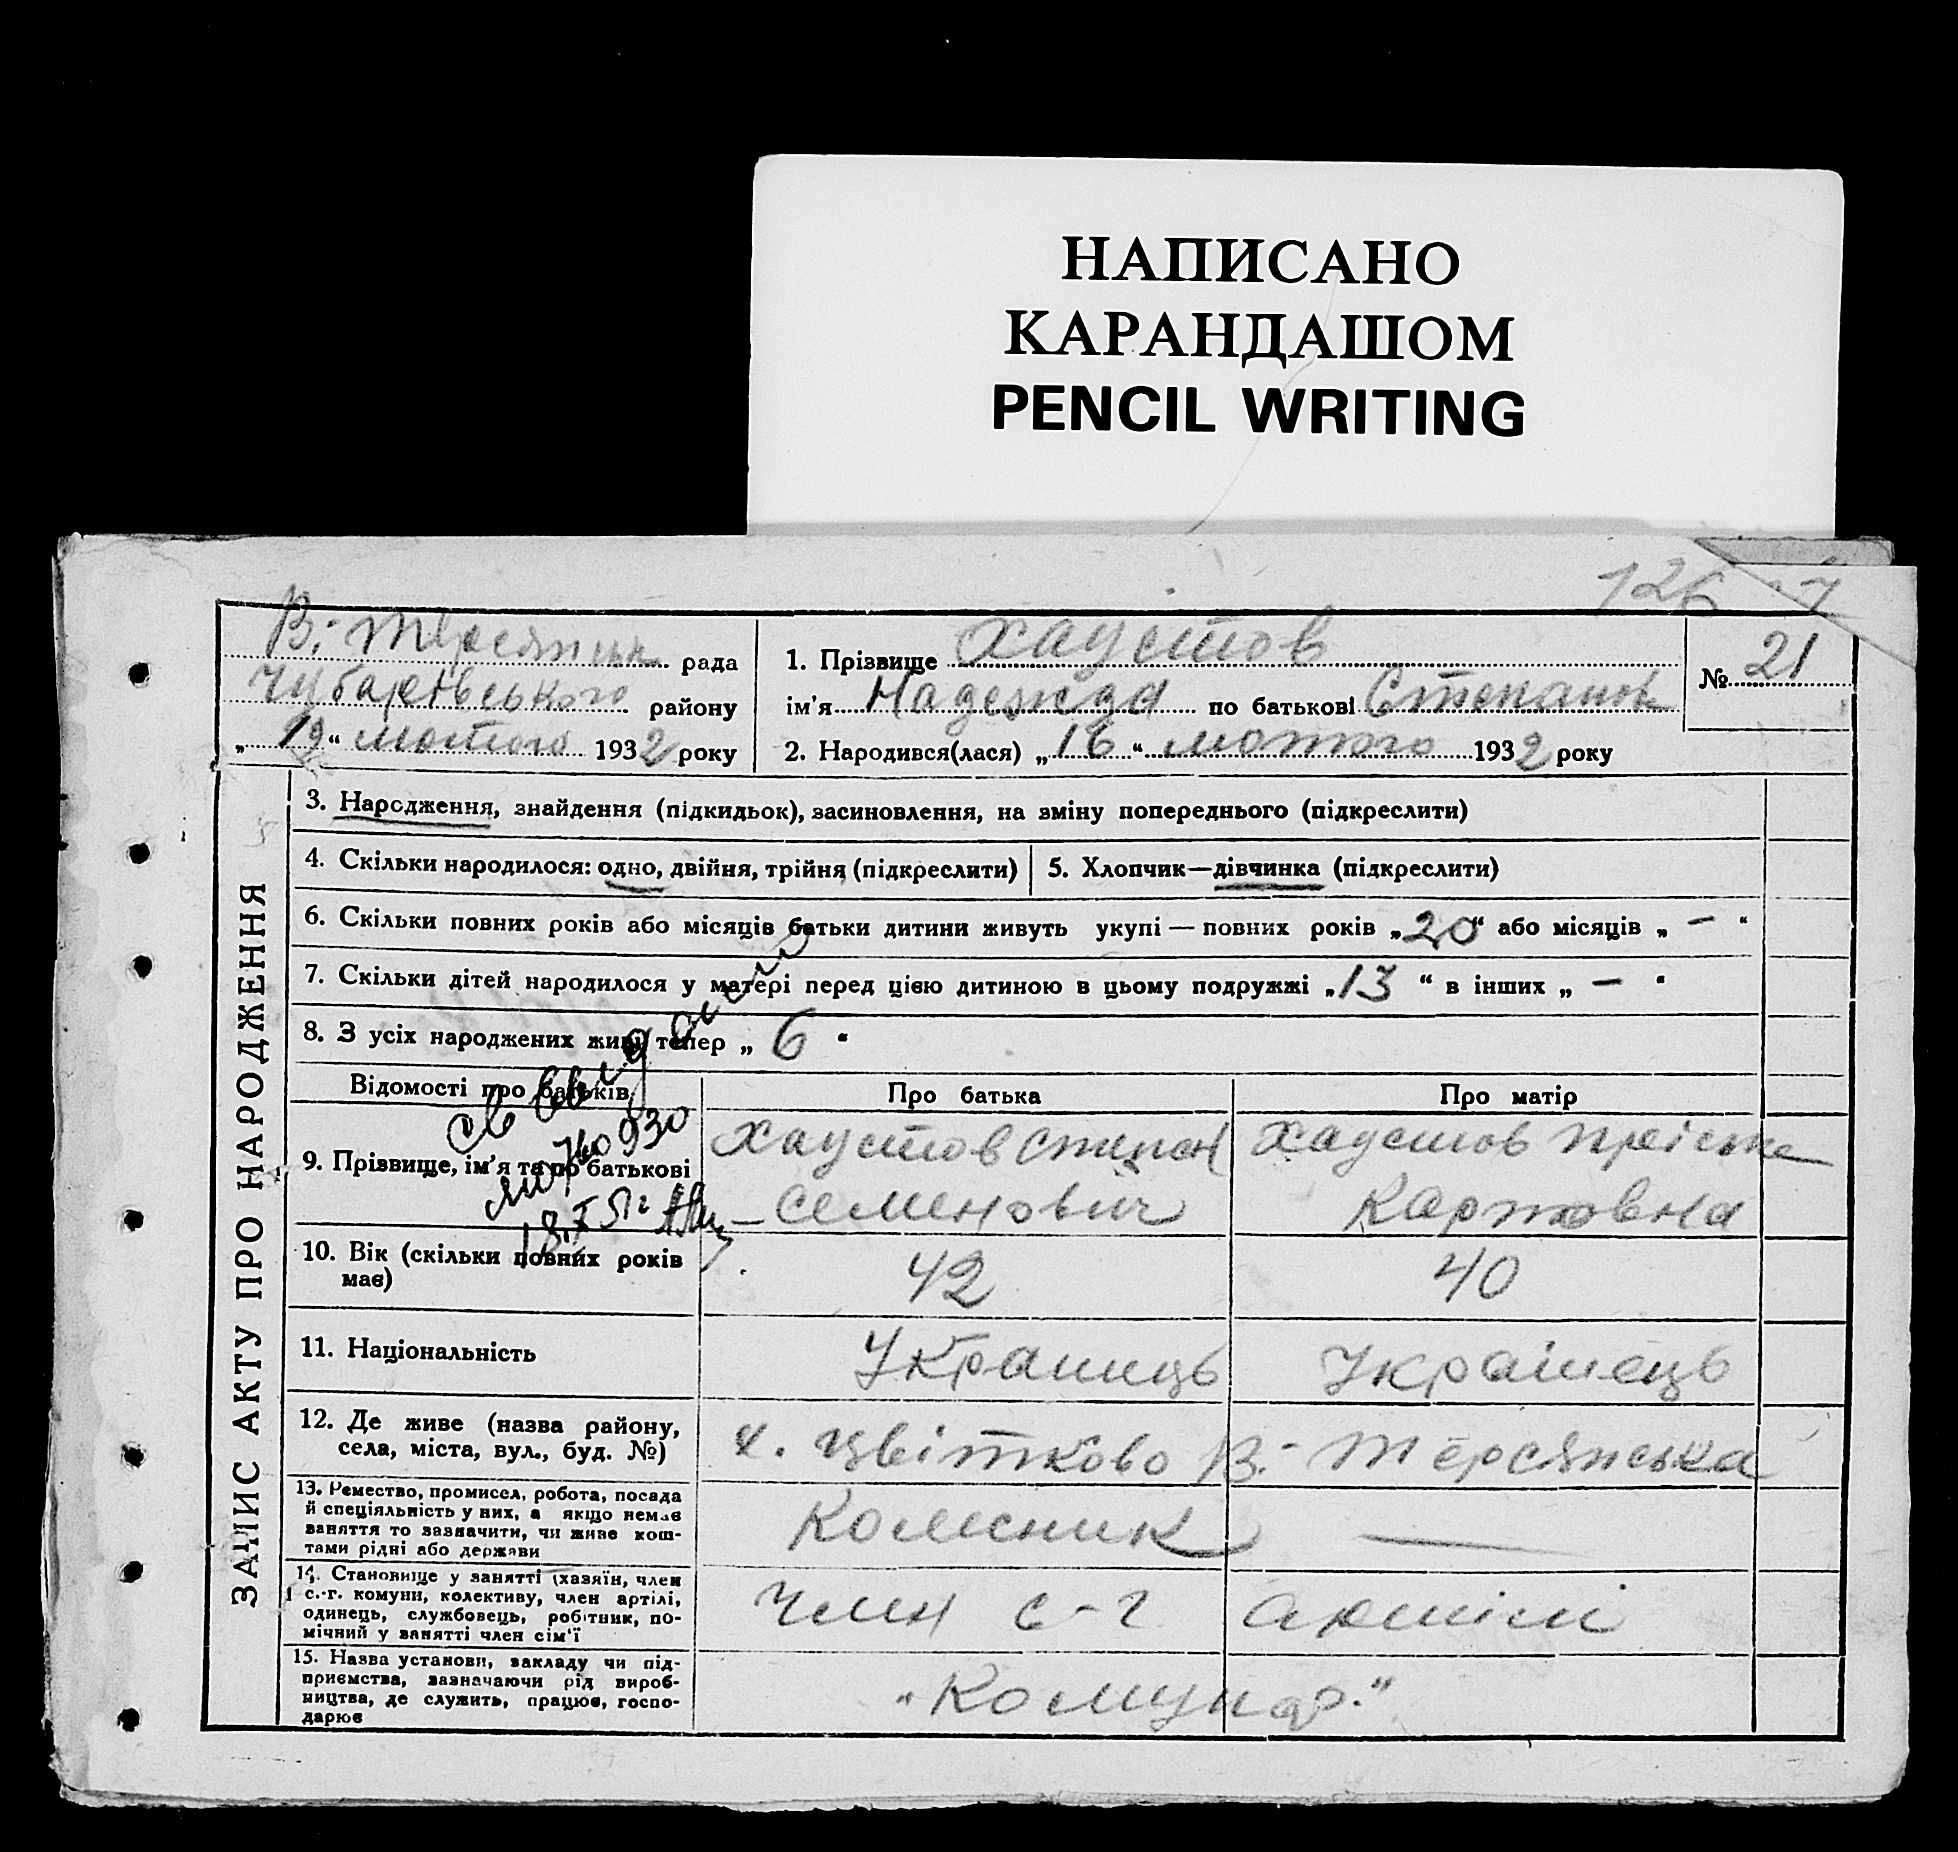 НАПИСАНО
КАРАНДАШОМ
PENCIL WRITING
126
В.-Терсянськ рада
Чубарівського району
„19“ лютого 1932 року
1. Прізвище Хаустов
ім'я Надежда по батькові Степанов
2. Народився(лася) „16“ лютого 1932 року
№ 21
ЗАПИС АКТУ ПРО НАРОДЖЕННЯ
3. Народження, знайдення (підкидьок), засиновлення, на зміну попереднього (підкреслити)
4. Скільки народилося: одно, двійня, трійня (підкреслити)
5. Хлопчик—дівчинка (підкреслити)
6. Скільки повних років або місяців батьки дитини живуть укупі — повних років „20“ або місяців „ – “
7. Скільки дітей народилося у матері перед цією дитиною в цьому подружжі „13“ в інших „ – “
8. З усіх народжених живі тепер „6“
Відомості про батьків
Про батька
Про матір
9. Прізвище, ім'я та по батькові
Хаустов Степан
Семенович
Хаустов
Карповна
10. Вік (скільки повних років
має)
42
40
11. Національність
Українець
Українець
12. Де живе (назва району,
села, міста, вул., буд. №)
х. Цвітково В.-Терсянська
13. Ремество, промисел, робота, посада
й спеціяльність у них, а якщо немає
заняття то зазначити, чи живе кош-
тами рідні або держави
Колісник —
14. Становище у занятті (хазяїн, член
с.-г. комуни, колективу, член артілі,
одинець, службовець, робітник, по-
мічний у занятті член сім'ї
Член с-г артілі
15. Назва установи, закладу чи під-
приємства, зазначаючи рід вироб-
ництва, де служить, працює, госпо-
дарює
„Комунар.“